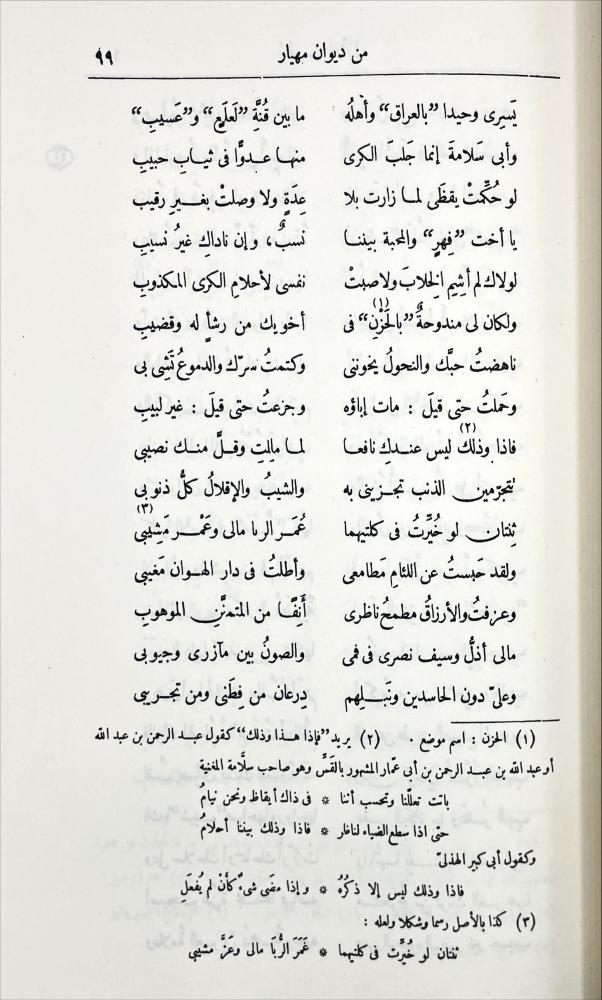 من ديوان مهيار ٩٩
يَسرِى وحيدا "بالعراق" وأهلُه ما بين قُنَّةِ "لَعلَعٍ" و"عَسيبِ"
وأبى سَلامةَ إنما جَلبَ الكرى منها عدوًّا فى ثيابِ حبيبِ
لو حُكِّمتْ يقظَى لما زارت بلا عِدَةٍ ولا وصلتْ بغيرِ رقيبِ
يا أخت "فِهرٍ" والمحبة بيننا نسبٌ، وإن ناداكِ غيرُ نسيبِ
لولاك لم أَشِمِ الخِلابَ ولا صبتْ نفسى لأحلامِ الكرى المكذوبِ
ولكان لى مندوحةٌ "بالحَزْنِ" (١) فى أخويك من رشأٍ له وقضيبِ
ناهضتُ حبَّك والنحولُ يخوننى وكتمتُ سرّك والدموعُ تَشِى بى
وحَملتُ حتى قيلَ : مات إباؤه وجزعتُ حتى قيلَ : غير لبيبِ
فاذا وذلك (٢) ليس عندكِ نافعا لما مللتِ وقلَّ منك نصيبى
تتجرّمين الذنب تجزينى به والشيبُ والإقلالُ كلُّ ذنوبى
ثِنتان لو خُيِّرتُ فى كلتيهما عُمَر الربا مالى وعَمْر مَشِيبى (٣)
ولقد حَبستُ عن اللئامِ مَطامعى وأطلتُ فى دار الهوان مَغيبى
وعزفتُ والأرزاقُ مطمحُ ناظرى أَنَفًا من المتمنِّنِ الموهوبِ
مالى أذلُّ وسيف نصرى فى فمى والصونُ بين مآزرى وجيوبى
وعلىّ دون الحاسدين ونَبلِهم دِرعان من فِطَنى ومن تجريبى
(١) الحزن : اسم موضع . (٢) يريد "فإذا هذا وذلك" كقول عبد الرحمن بن عبد الله
أو عبد الله بن عبد الرحمن بن أبى عمّار المشهور بالقَسِّ وهو صاحب سلَّامة المغنية
باتت تعللّنا وتحسب أننا * فى ذاك أيقاظ ونحن نيامُ
حتى اذا سطع الضياء لناظر * فاذا وذلك بيننا أحلامُ
وكقول أبى كبير الهذلىّ
فاذا وذلك ليس إلا ذكرُه * واذا مضى شىءٌ كأنْ لم يُفعَلِ
(٣) كذا بالأصل رسما وشكلا ولعله :
ثنتان لو خُيِّرت فى كلتيهما * غَمَرَ الرُّبَا مالى وعَزَّ مشيبى